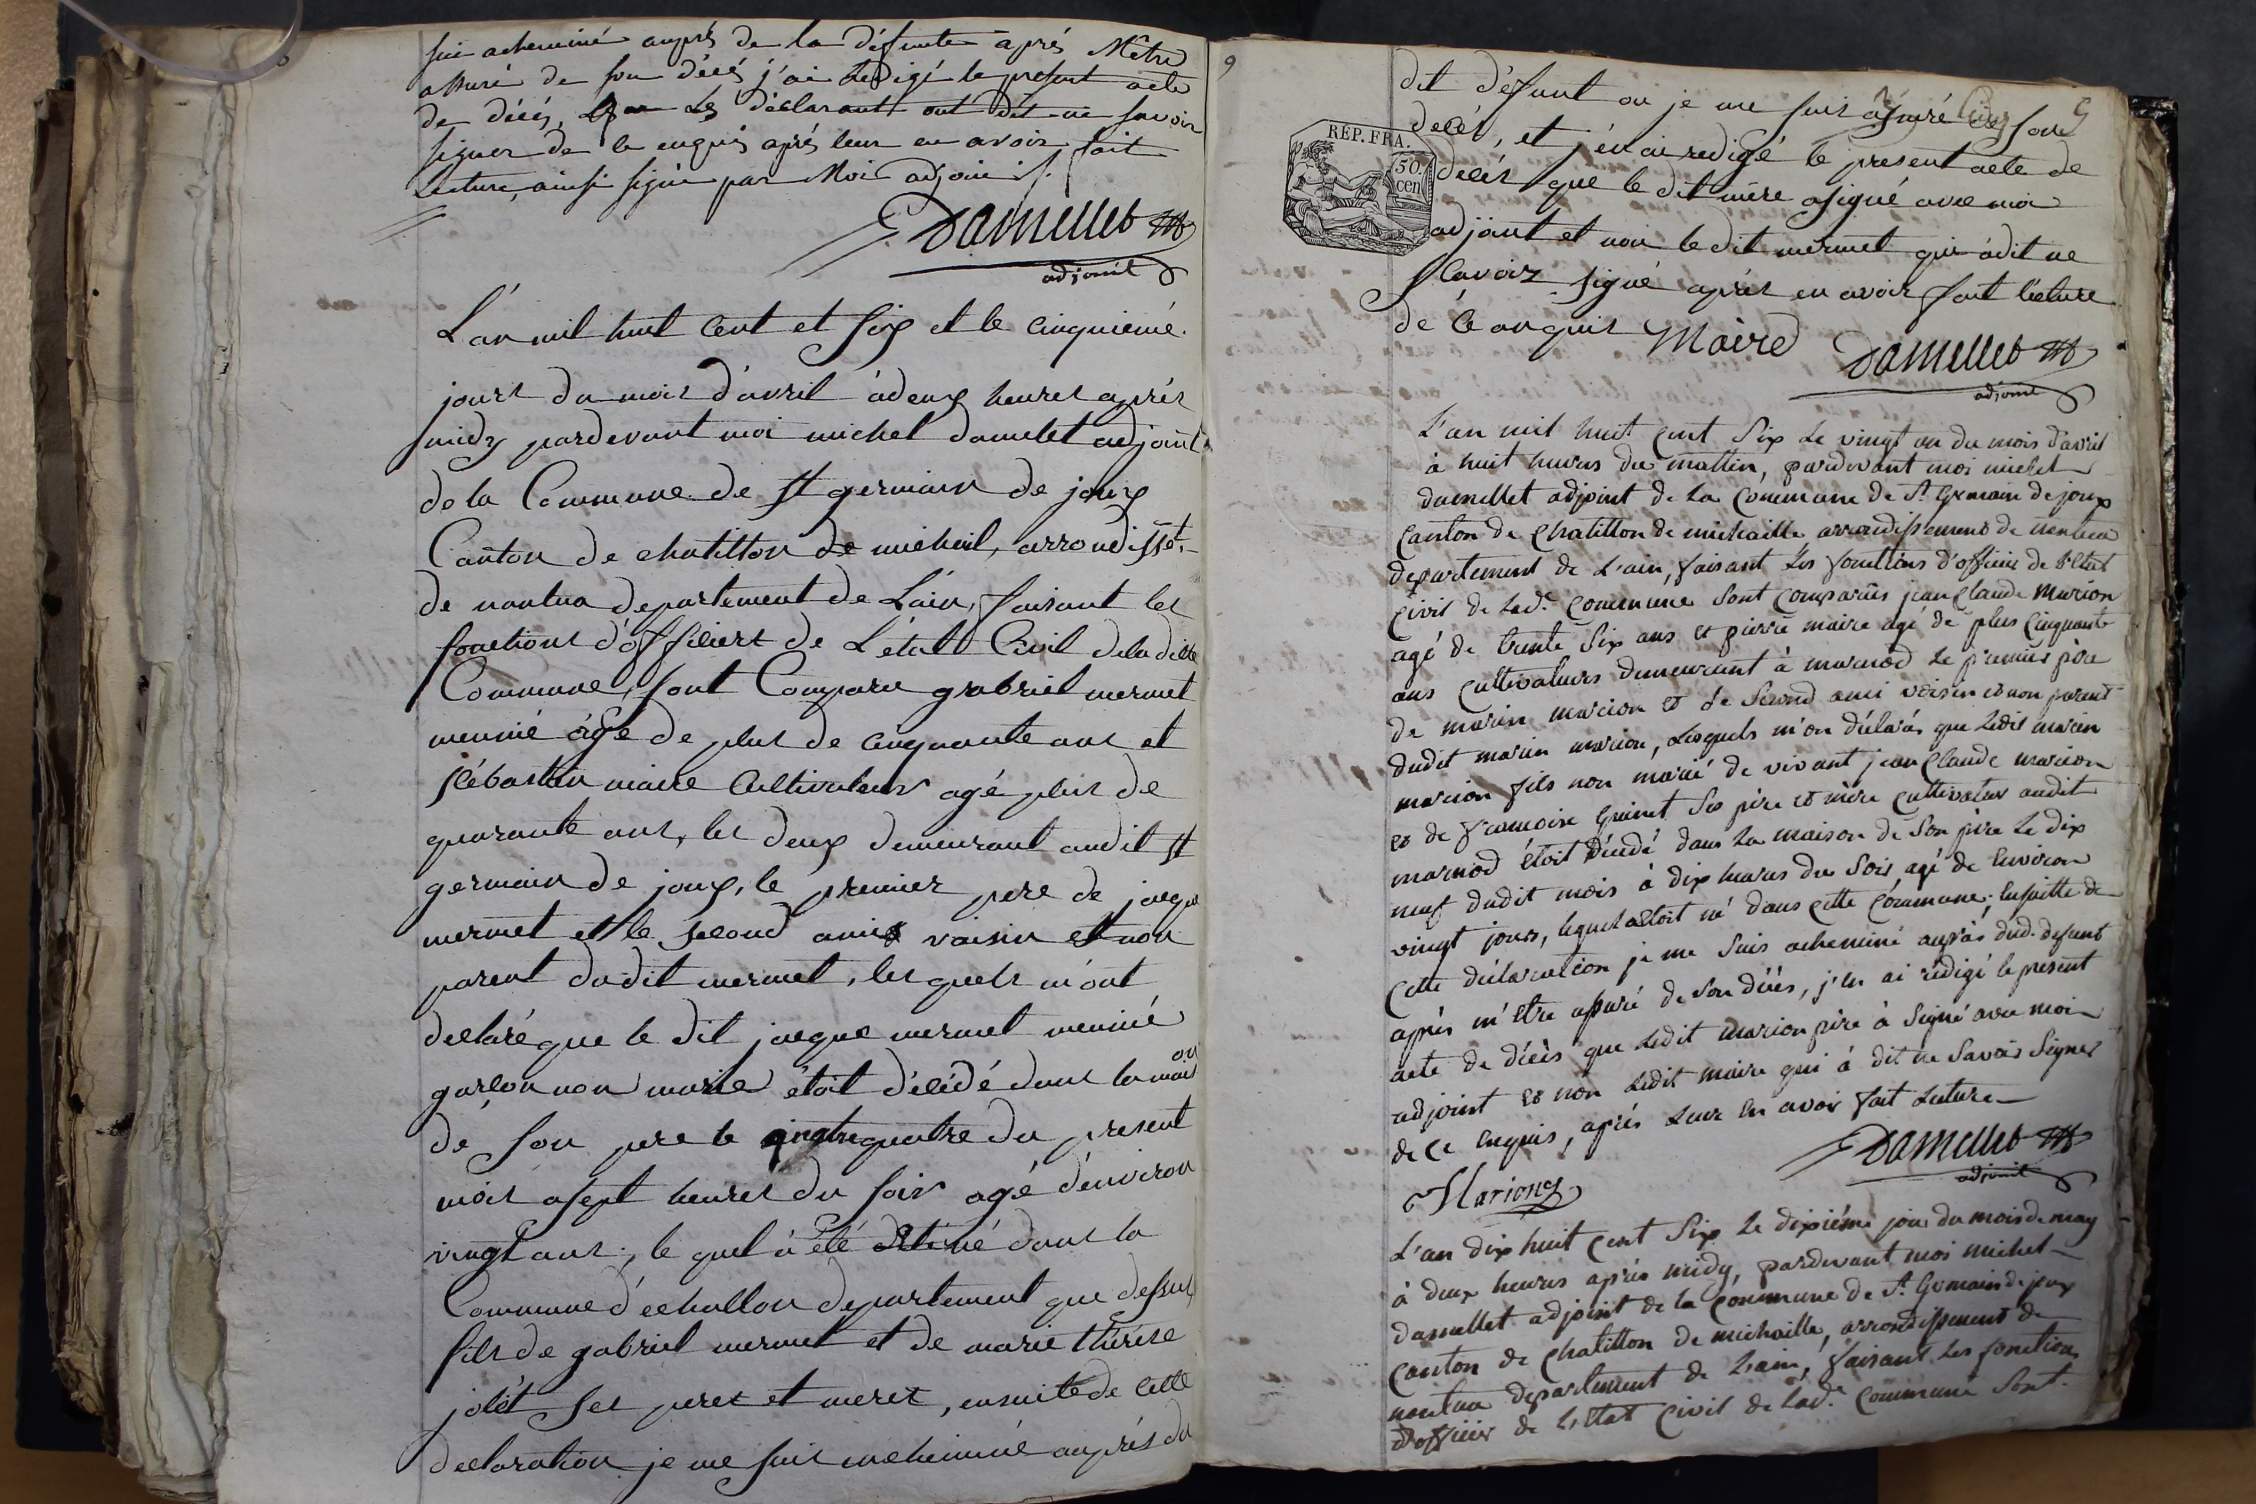 suis acheminé auprès de la défunte après M'être
assuré de son décés j'ai Redigé le présent acte
de décés, Les déclarants ont dit ne savoir
signer de ce enquis aprés leur en avoir fait
Lecture, ainsi signé par Moi adjoint
Damellet
adjoint
L'an mil huit Cent et Six et le Cinquiemé
jours du mois d'avril à deux heures après
midy pardevant moi michel damelet adjoint
de la Commune de st germain de joux
Canton de chatillon de michail, arrondisset.
de nantua departement de L'ain, faisant les
fonctions d'officiers de L'état Civil de la dite
Commune, sont Comparu grabriel mermet
meunié âgé de plus de cinquante ans et
sébastien maire Cultivateur agé plus de
quarante ans, les deux demeurant audit st
germain de joux, le premier pere de jacque
mermet et le second amis voisin et non
parent dudit mermet, les quels m'ont
declaré que le dit jacque mermet meunié
garson non marié étoit décédé dans la maison
de son pere le quatre du present
mois a sept heures du soir agé d'environ
vingt ans, le quel à été né dans la
Commune d'echallon departement que dessus
fils de gabriel mermet et de marie thérèse
jolet ses peres et meres, ensuite de cette
declaration je me suis acheminé auprés du
9
dit défunt ou je me suis assuré de son
decés, et j'en ai redigé le present acte de
RÉP. FRA.
50.
cen
décés que le dit mère a signé avec moi
adjoint et non le dit mermet qui a dit ne
scavoir signé aprés en avoir fait lécture
de ce anquis Maire Damellet
adjoint
L'an mil huit cent Six Le vingt un du mois d'avril
à huit heures du mattin, pardevant moi michel
damellet adjoint de La Commune de St. Germain de joux
canton de Chatillon de michaille arrondissement de nantua
département de L'ain, faisant Les fonctions d'officier de L'état
civil de Lade. Commune Sont comparûs jean Claude Marion
agé de trente Six ans et pierre maire agé de plus Cinquante
ans cultivateurs demeurant à marnod Le premier père
de marin marion et Le Second ami voisin et non parent
dudit marin marion, Lesquels m'on déclarés que Ledit marin
marion fils non marié de vivant jean Claude marion
et de francoise Guinet Ses père et mère cultivateur audit
marnod étoit décédé dans La maison de Son père Le dix
neuf dudit mois à dix heures du Soir agé de Environ
vingt jours, lequel étoit né dans cette Commune, Ensuitte de
Cette déclaration je me Suis acheminé auprès dud. defunt
après m'être assuré de Son décès, j'en ai rédigé le present
acte de décès que Ledit marion père à Signé avec moi
adjoint et non Ledit maire qui à dit ne Savoir Signer
de ce Enquis, aprés Leur En avoir fait Lecture
Damellet
adjoint
Marion
L'an dix huit cent Six Le dixiéme jour du mois de may
à deux heures après midy, pardevant moi michel
damellet adjoint de la Commune de St. Germain de joux
canton de Chatillon de michaille, arrondissement de
nantua departement de L'ain, faisant Les fonctions
d'officier de L'état Civil de Lade. Commune Sont